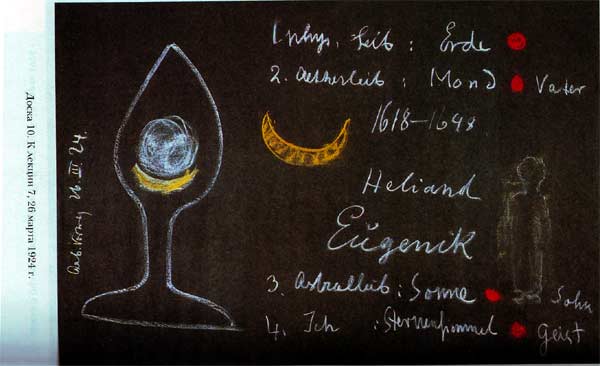 1. phys. Leib : Erde
2. Aetherleib : Mond Vater
1618–1648
Heliand
Eugenik
3. Astralleib : Sonne Sohn
4. Ich : Sternenhimmel Geist
26. III. 24.
Доска 10. К лекции 7, 26 марта 1924 г.